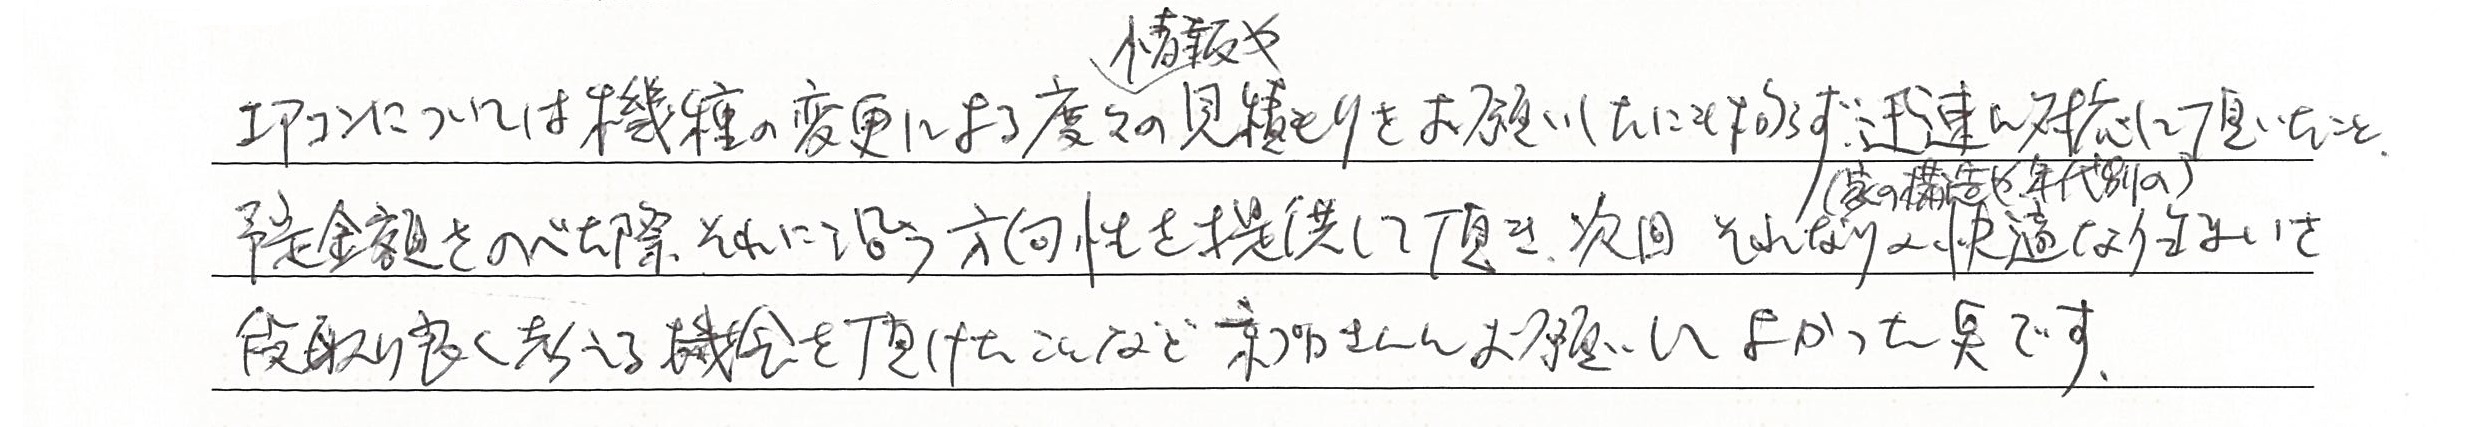 情報や
エアコンについては機種の変更による度々の見積もりをお願いしたにも拘らず迅速に対応して頂いたこと、
(家の構造や年代別の)
予定金額をのべた際、それに沿う方向性を提供して頂き、次回それなりの快適な住まいを
段取り良く考える機会を頂けたことなど京プロさんにお願いしてよかった点です。